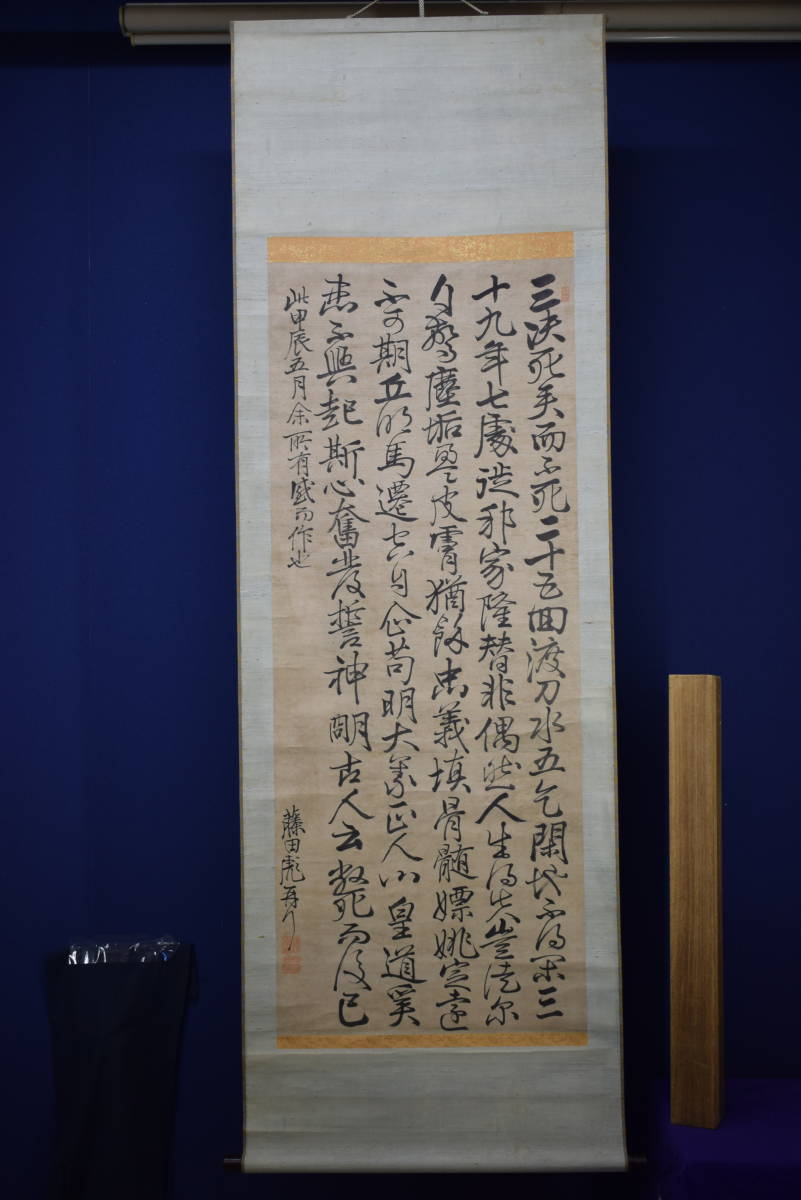 三決死矣而不死二十五回渡刀水五乞閑地不得閑三
十九年七處徙邦家隆替非偶然人生得失豈徒爾
自驚塵垢盈皮膚猶餘忠義填骨髄嫖姚定遠
不可期丘明馬遷空自企苟明大義正人心皇道奚
患不興起斯心奮發誓神明古人云斃而後已
此甲辰五月余所有感而作也
藤田彪